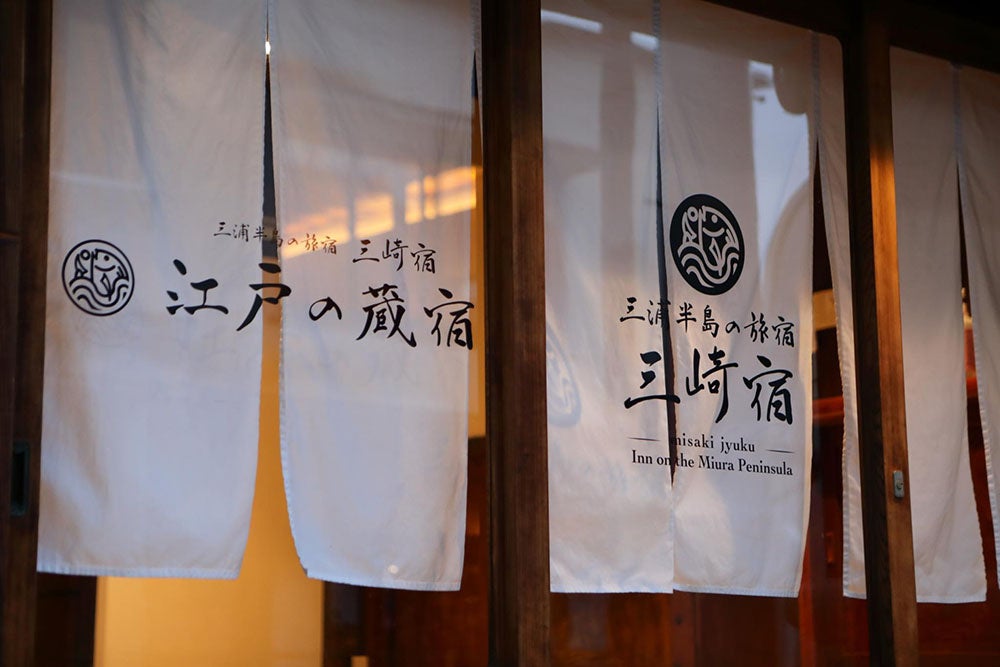 三浦半島の旅宿 三崎宿
江戸の蔵宿
三浦半島の旅宿
三崎宿
misaki jyuku
Inn on the Miura Peninsula